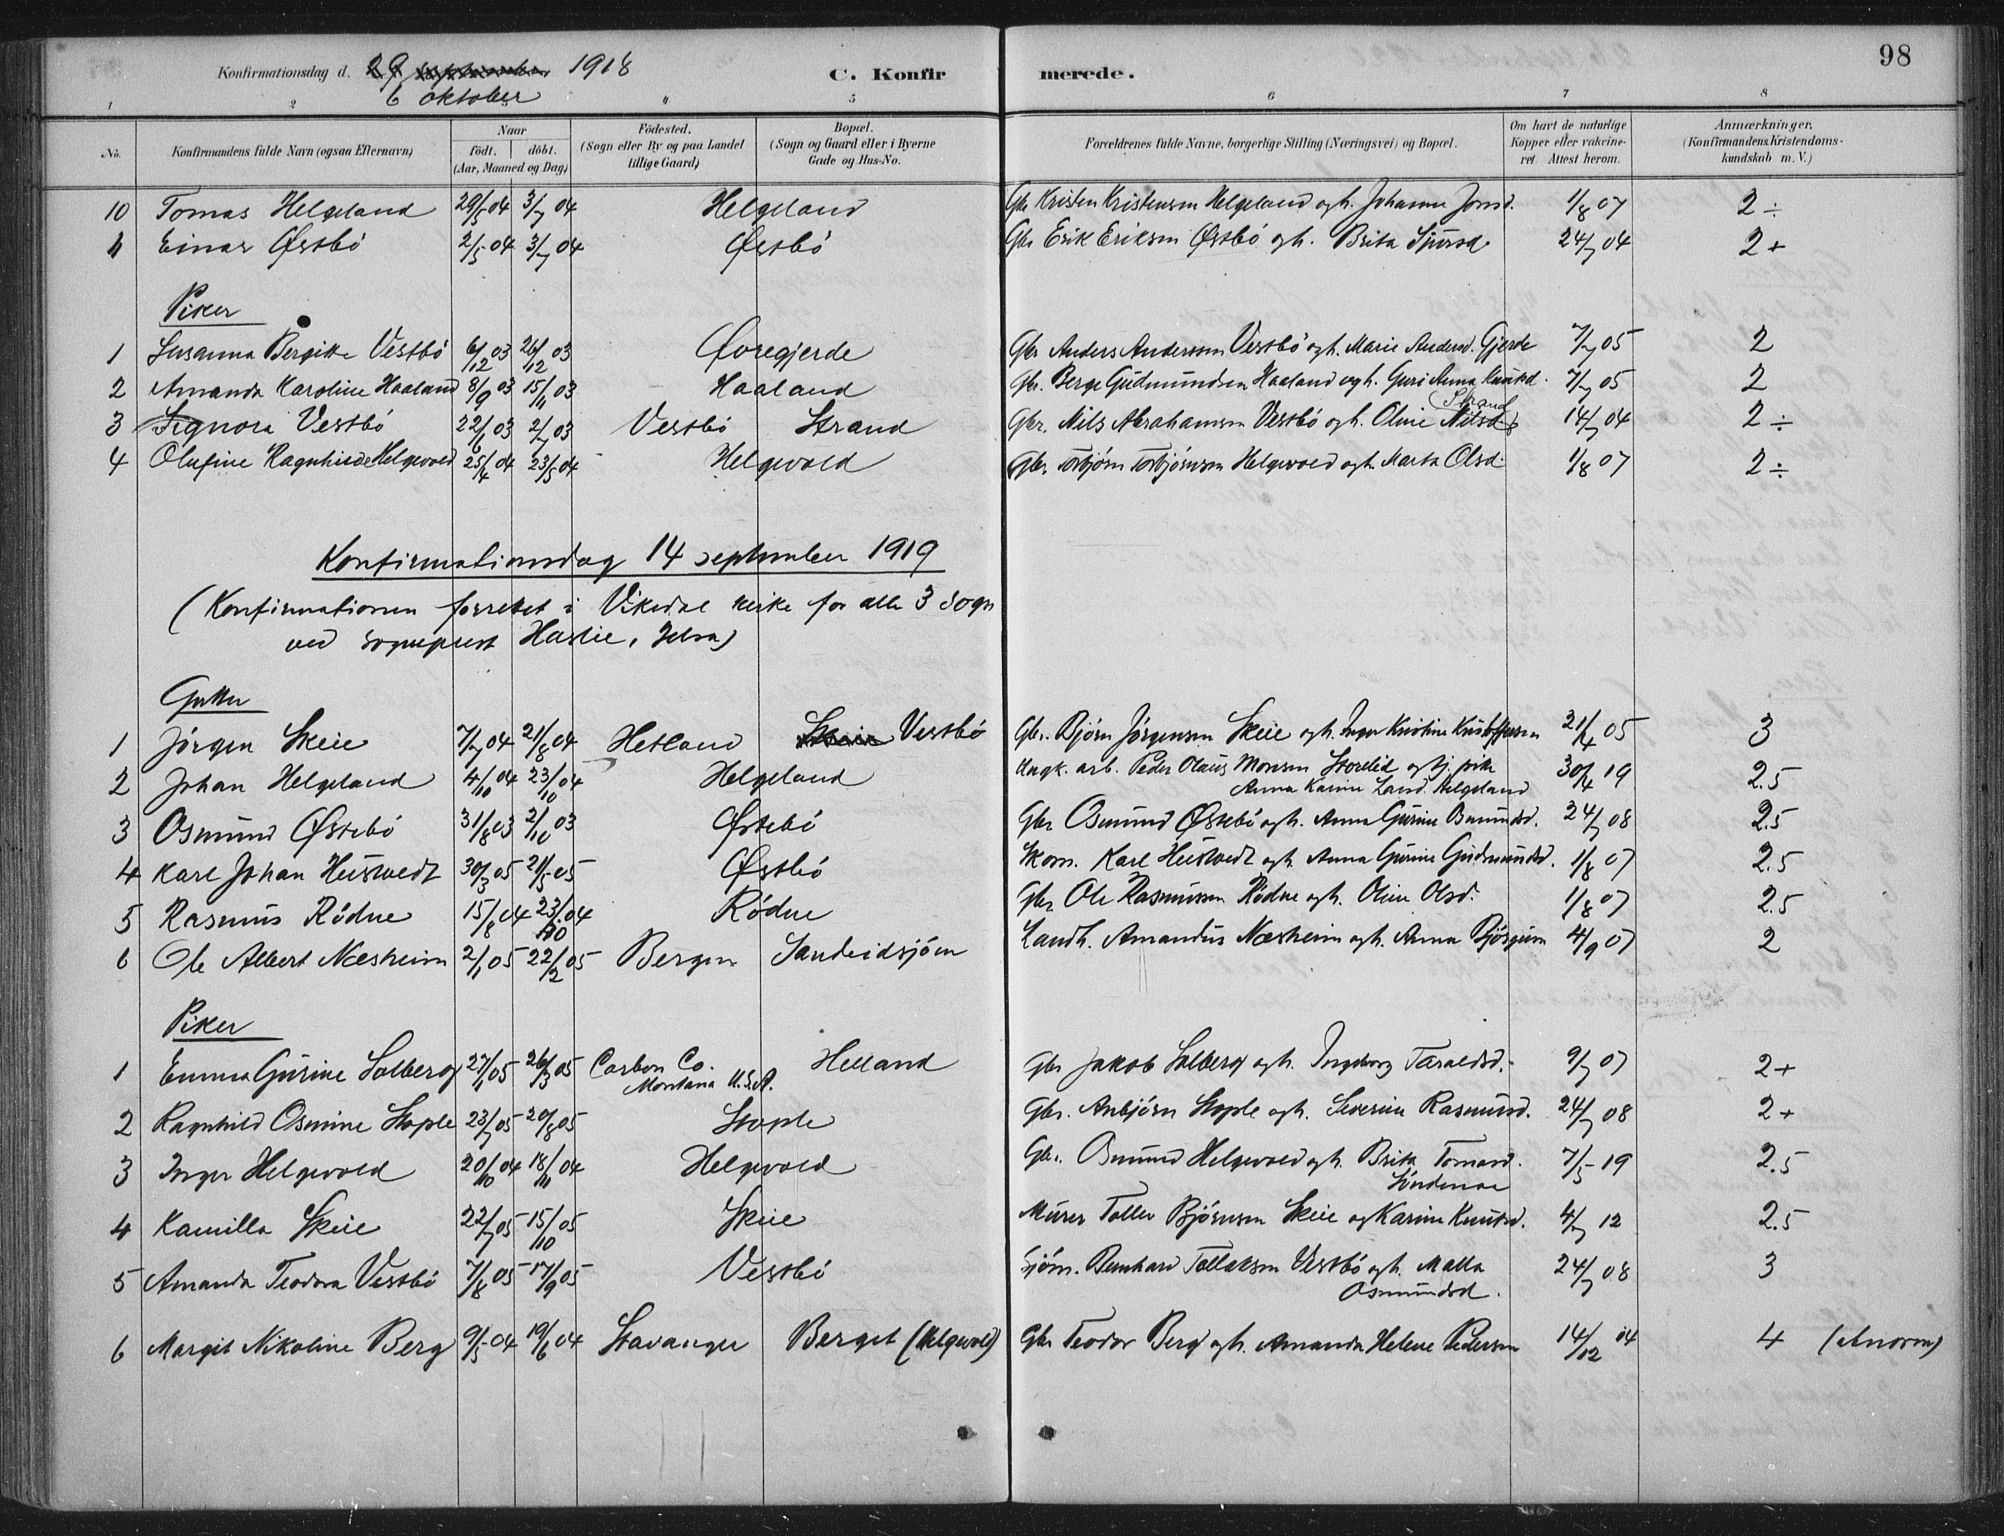 98
Konfirmationsdag d. 29 september 1918
6 oktober
C. Konfirmerede.
1 2 " 5 6 7 8
No. Konfirmandens fulde Navn (ogsaa Efternavn) Naar födt. döbt. (Aar, Maaned og Dag) Födested. (Sogn eller By og paa Landet tillige Gaard) Bopæl. (Sogn og Gaard eller i Byerne Gade og Hus-No. Forældrenes fulde Navne, borgerlige Stilling (Næringsvei) og Bopæl. Om havt de naturlige Kopper eller vakcineret. Attest herom. Anmærkninger. (Konfirmandens Kristendomskundskab m. V.)
10 Tomas Helgeland 29/5 04 3/7 04 Helgeland Gbr Kristen Kristensen Helgeland og h. Johanna Jonsd. 1/8 07 2 ÷
11 Einar Østbö 2/5 04 3/7 04 Østbö Gbr Erik Eriksen Østbö og h. Brita Sjursd 24/7 04 2+
Piker
1 Susanna Bergitte Vestbö 6/12 03 26/12 03 Øvregjerde Gbr Anders Anderssen Vestbö og h. Marie Andersd. Gjerde 7/7 05 2
2 Amanda Karoline Haaland 8/9 03 15/11 03 Haaland Gbr. Berge Gudmundsen Haaland og h. Guri Anna Knutsd. 7/7 05 2
3 Signora Vestbö 22/6 03 2/7 03 Vestbö Strand Gbr. Nils Abrahamsen Vestbö og h. Oline Nilsd (Strand) 14/7 04 2 ÷
4 Olufine Ragnhilde Helgevold 25/4 04 23/5 04 Helgevold Gbr Torbjörn Torbjörnsen Helgevold og h. Marta Olsd. 1/8 07 2 ÷
Konfirmationsdag 14 september 1919
(Konfirmationen forrettet i Vikedal kirke for alle 3 sogn
ved sogneprest Haslie, Jelsa)
Gutter
1 Jörgen Skeie 7/7 04 21/8 04 Hetland Skeie Vestbö Gbr. Björn Jörgensen Skeie og h. Inger Kristine Kristoffersen 21/4 05 3
2 Johan Helgeland 4/10 04 23/10 04 Helgeland Ungk. arb. Peder Olaus Monsen Storelid og tj. pike
Anna Karine Larsd. Helgeland 30/4 19 2.5
3 Osmund Østebö 31/8 03 2/10 03 Østebö Gbr Osmund Østebö og h. Anna Gurine Osmundsd. 24/7 08 2.5
4 Karl Johan Heistvedt 30/3 05 21/5 05 Østbö Skom. Karl Heistvedt og h. Anna Gurine Gudmundsd. 1/8 07 2.5
5 Rasmus Rödne 15/8 04 23/10 04 Rödne Gbr Ole Rasmussen Rödne og h. Oline Olsd. 1/8 07 2.5
6 Ole Albert Næsheim 2/1 05 22/2 05 Bergen Sandeidsjöen Landh. Amandus Næsheim og h. Anna Bjørgum 4/9 07 2
Piker
1 Emma Gurine Solberg 27/1 05 26/3 05 Carbon Co.
Montana U.S.A. Helland Gbr Jakob Solberg og h. Ingeborg Taraldsd. 9/7 07 2+
2 Ragnhild Osmine Stople 23/7 05 20/8 05 Stople Gbr. Anbjörn Stople og h. Severine Rasmusd. 24/7 08 2+
3 Inger Helgevold 20/10 04 18/11 04 Helgevold Gbr. Osmund Helgevold og h. Brita Tomasd.
Söndenaa 7/5 19 2.5
4 Kamilla Skeie 22/7 05 15/10 05 Skeie Murer Tollev Björnsen Skeie og Karine Knutsd. 4/7 12 2.5
5 Amanda Teodora Vestbö 7/8 05 17/9 05 Vestbö Sjöm. Bernhard Tollaksen Vestbö og h. Malla
Osmundsd. 24/7 08 3
6 Margit Nikoline Berg 9/5 04 19/6 04 Stavanger Berget (Helgevold) Gbr Teodor Berg og h. Amanda Helene Pedersen 14/12 04 4 (Anorm)